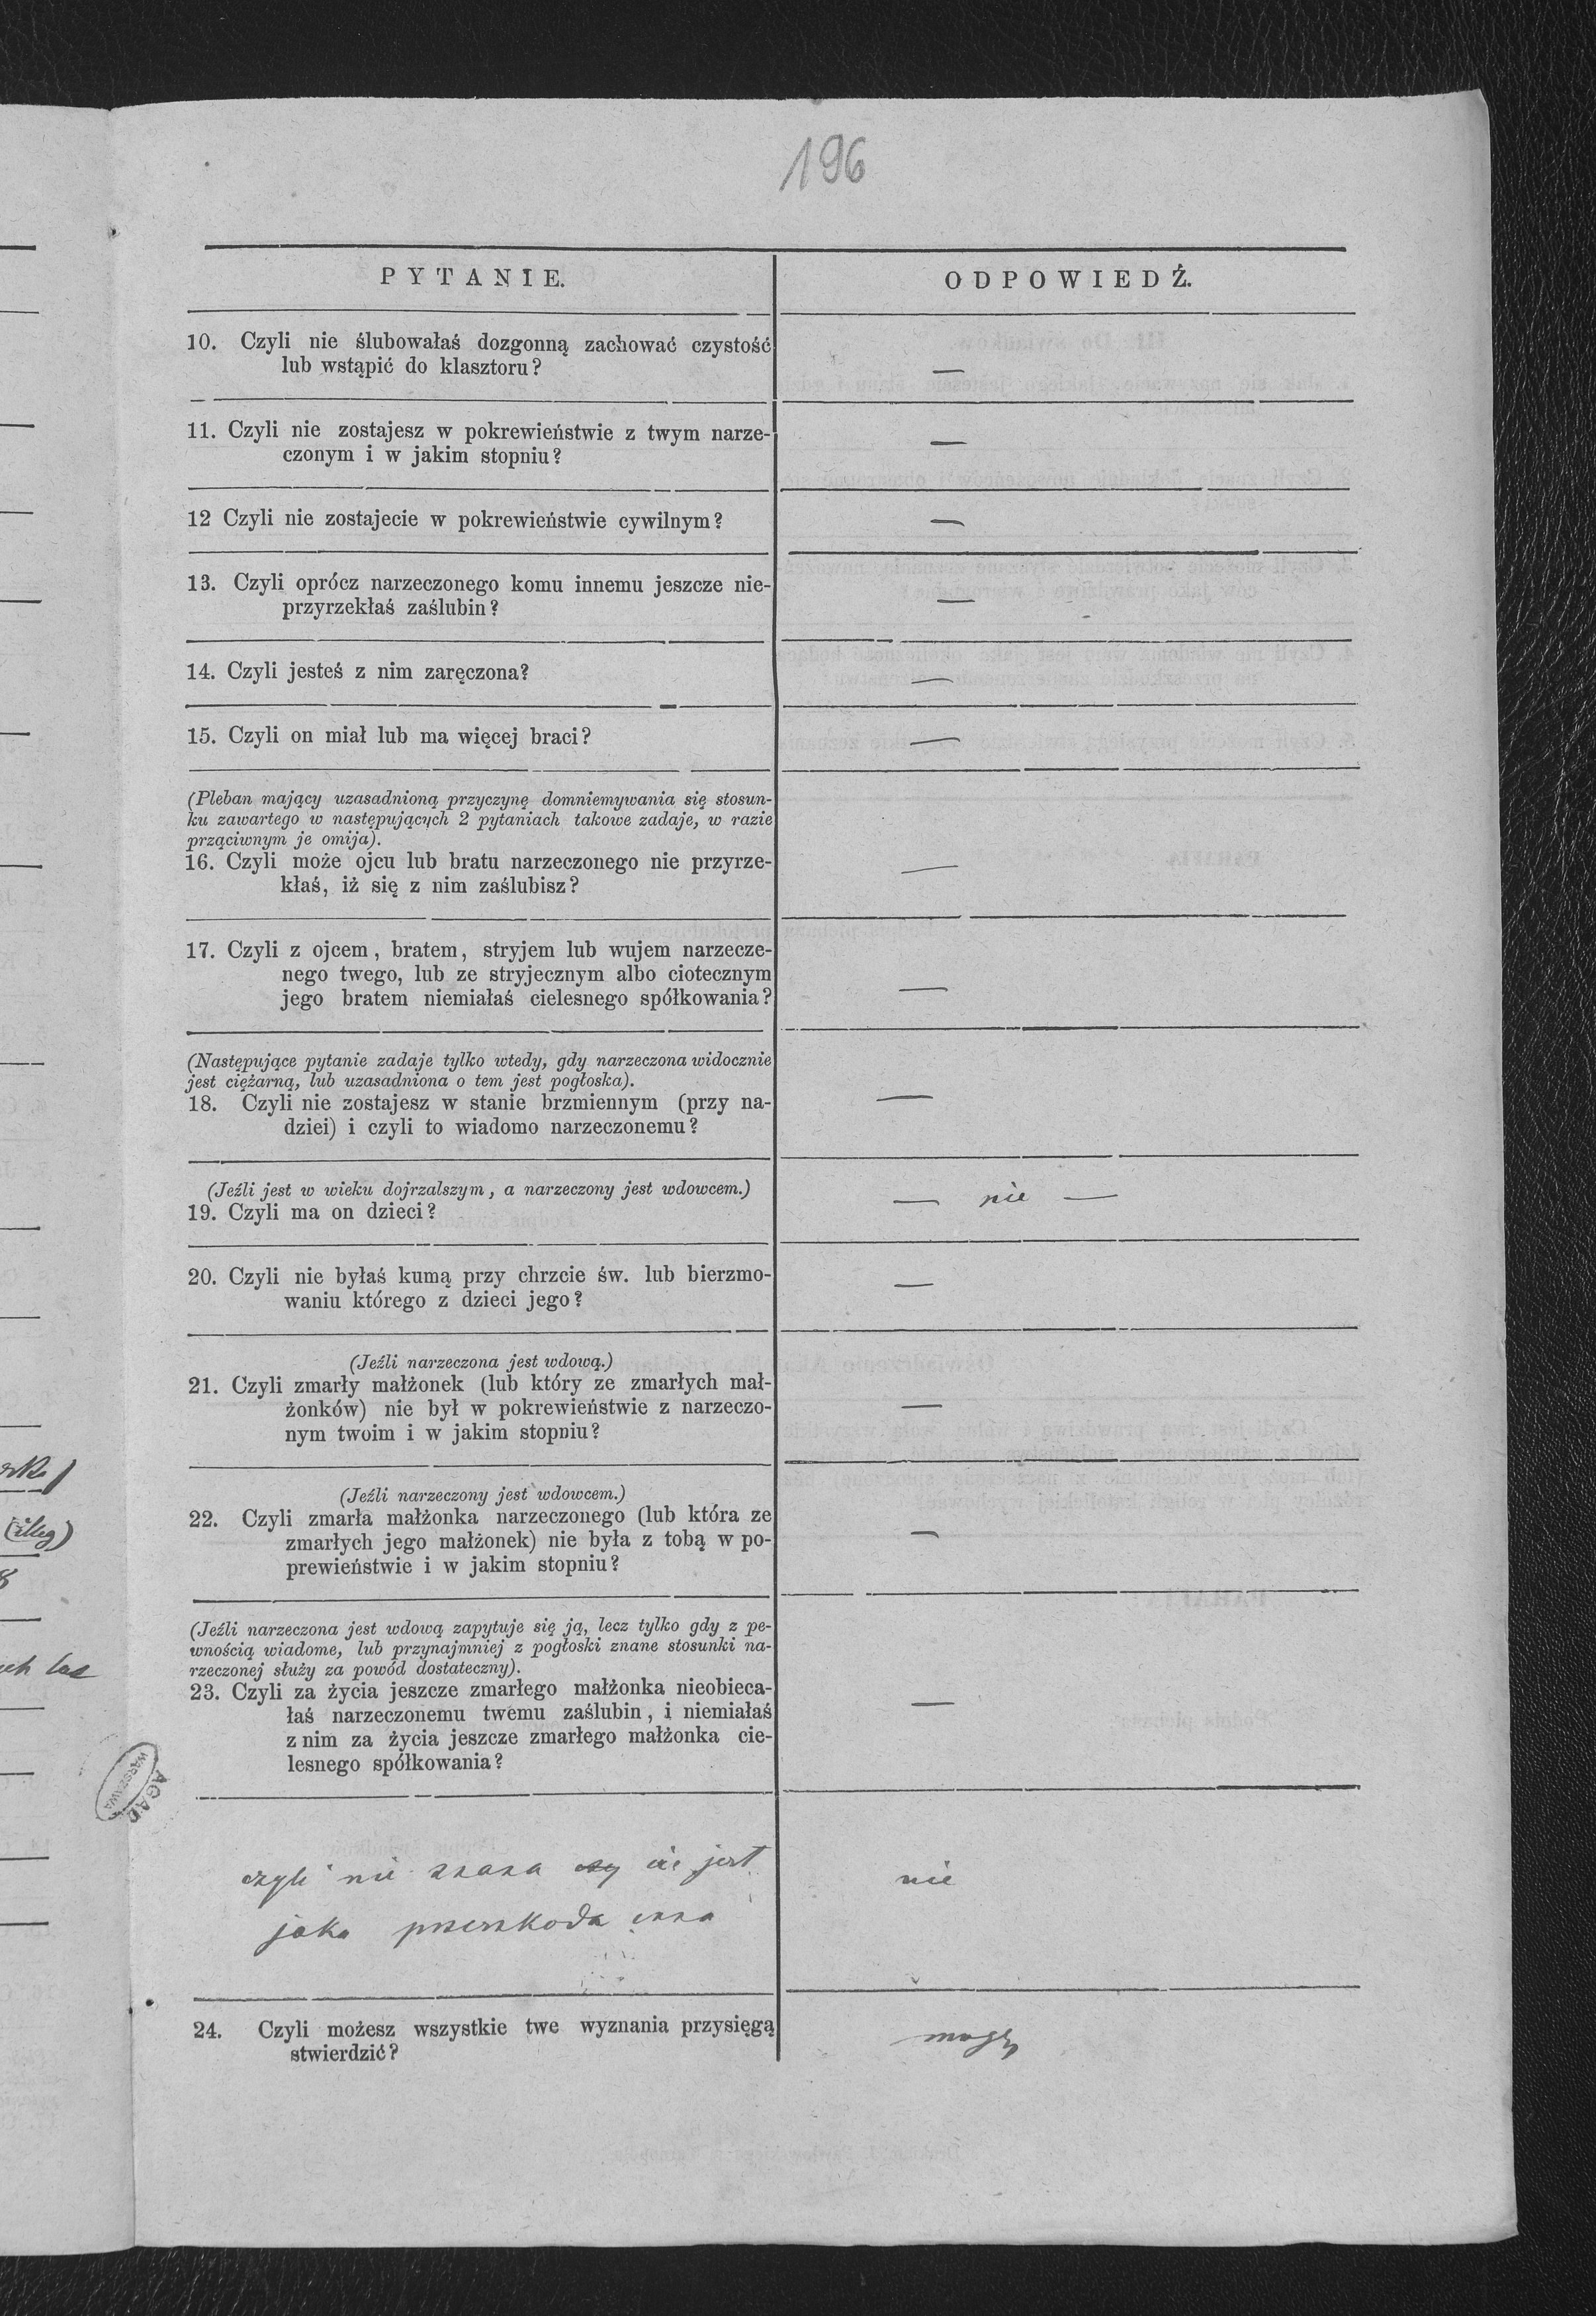 196
PYTANIE.
ODPOWIEDŹ.
10. Czyli nie ślubowałaś dozgonną zachować czystość
lub wstąpić do klasztoru?
—
11. Czyli nie zostajesz w pokrewieństwie z twym narze-
czonym i w jakim stopniu?
—
12 Czyli nie zostajecie w pokrewieństwie cywilnym?
—
13. Czyli oprócz narzeczonego komu innemu jeszcze nie-
przyrzekłaś zaślubin?
—
14. Czyli jesteś z nim zaręczona?
—
15. Czyli on miał lub ma więcej braci?
—
(Pleban mający uzasadnioną przyczynę domniemywania się stosun-
ku zawartego w następujących 2 pytaniach takowe zadaje, w razie
prząciwnym je omija).
16. Czyli może ojcu lub bratu narzeczonego nie przyrze-
kłaś, iż się z nim zaślubisz?
—
17. Czyli z ojcem, bratem, stryjem lub wujem narzecze-
nego twego, lub ze stryjecznym albo ciotecznym
jego bratem niemiałaś cielesnego spółkowania?
—
(Następujące pytanie zadaje tylko wtedy, gdy narzeczona widocznie
jest ciężarną, lub uzasadniona o tem jest pogłoska).
18. Czyli nie zostajesz w stanie brzmiennym (przy na-
dziei) i czyli to wiadomo narzeczonemu?
—
(Jeźli jest w wieku dojrzalszym, a narzeczony jest wdowcem.)
19. Czyli ma on dzieci?
— nie —
20. Czyli nie byłaś kumą przy chrzcie św. lub bierzmo-
waniu którego z dzieci jego?
—
(Jeźli narzeczona jest wdową.)
21. Czyli zmarły małżonek (lub który ze zmarłych mał-
żonków) nie był w pokrewieństwie z narzeczo-
nym twoim i w jakim stopniu?
—
(Jeźli narzeczony jest wdowcem.)
22. Czyli zmarła małżonka narzeczonego (lub która ze
zmarłych jego małżonek) nie była z tobą w po-
prewieństwie i w jakim stopniu?
—
(Jeźli narzeczona jest wdową zapytuje się ją, lecz tylko gdy z pe-
wnością wiadome, lub przynajmniej z pogłoski znane stosunki na-
rzeczonej służy za powód dostateczny).
23. Czyli za życia jeszcze zmarłego małżonka nieobieca-
łaś narzeczonemu twemu zaślubin, i niemiałaś
z nim za życia jeszcze zmarłego małżonka cie-
lesnego spółkowania?
—
AGAD
WARSZAWA
czyli nie znana jest
jaka przeszkoda inna
nie
24. Czyli możesz wszystkie twe wyznania przysięgą
stwierdzić?
mogę